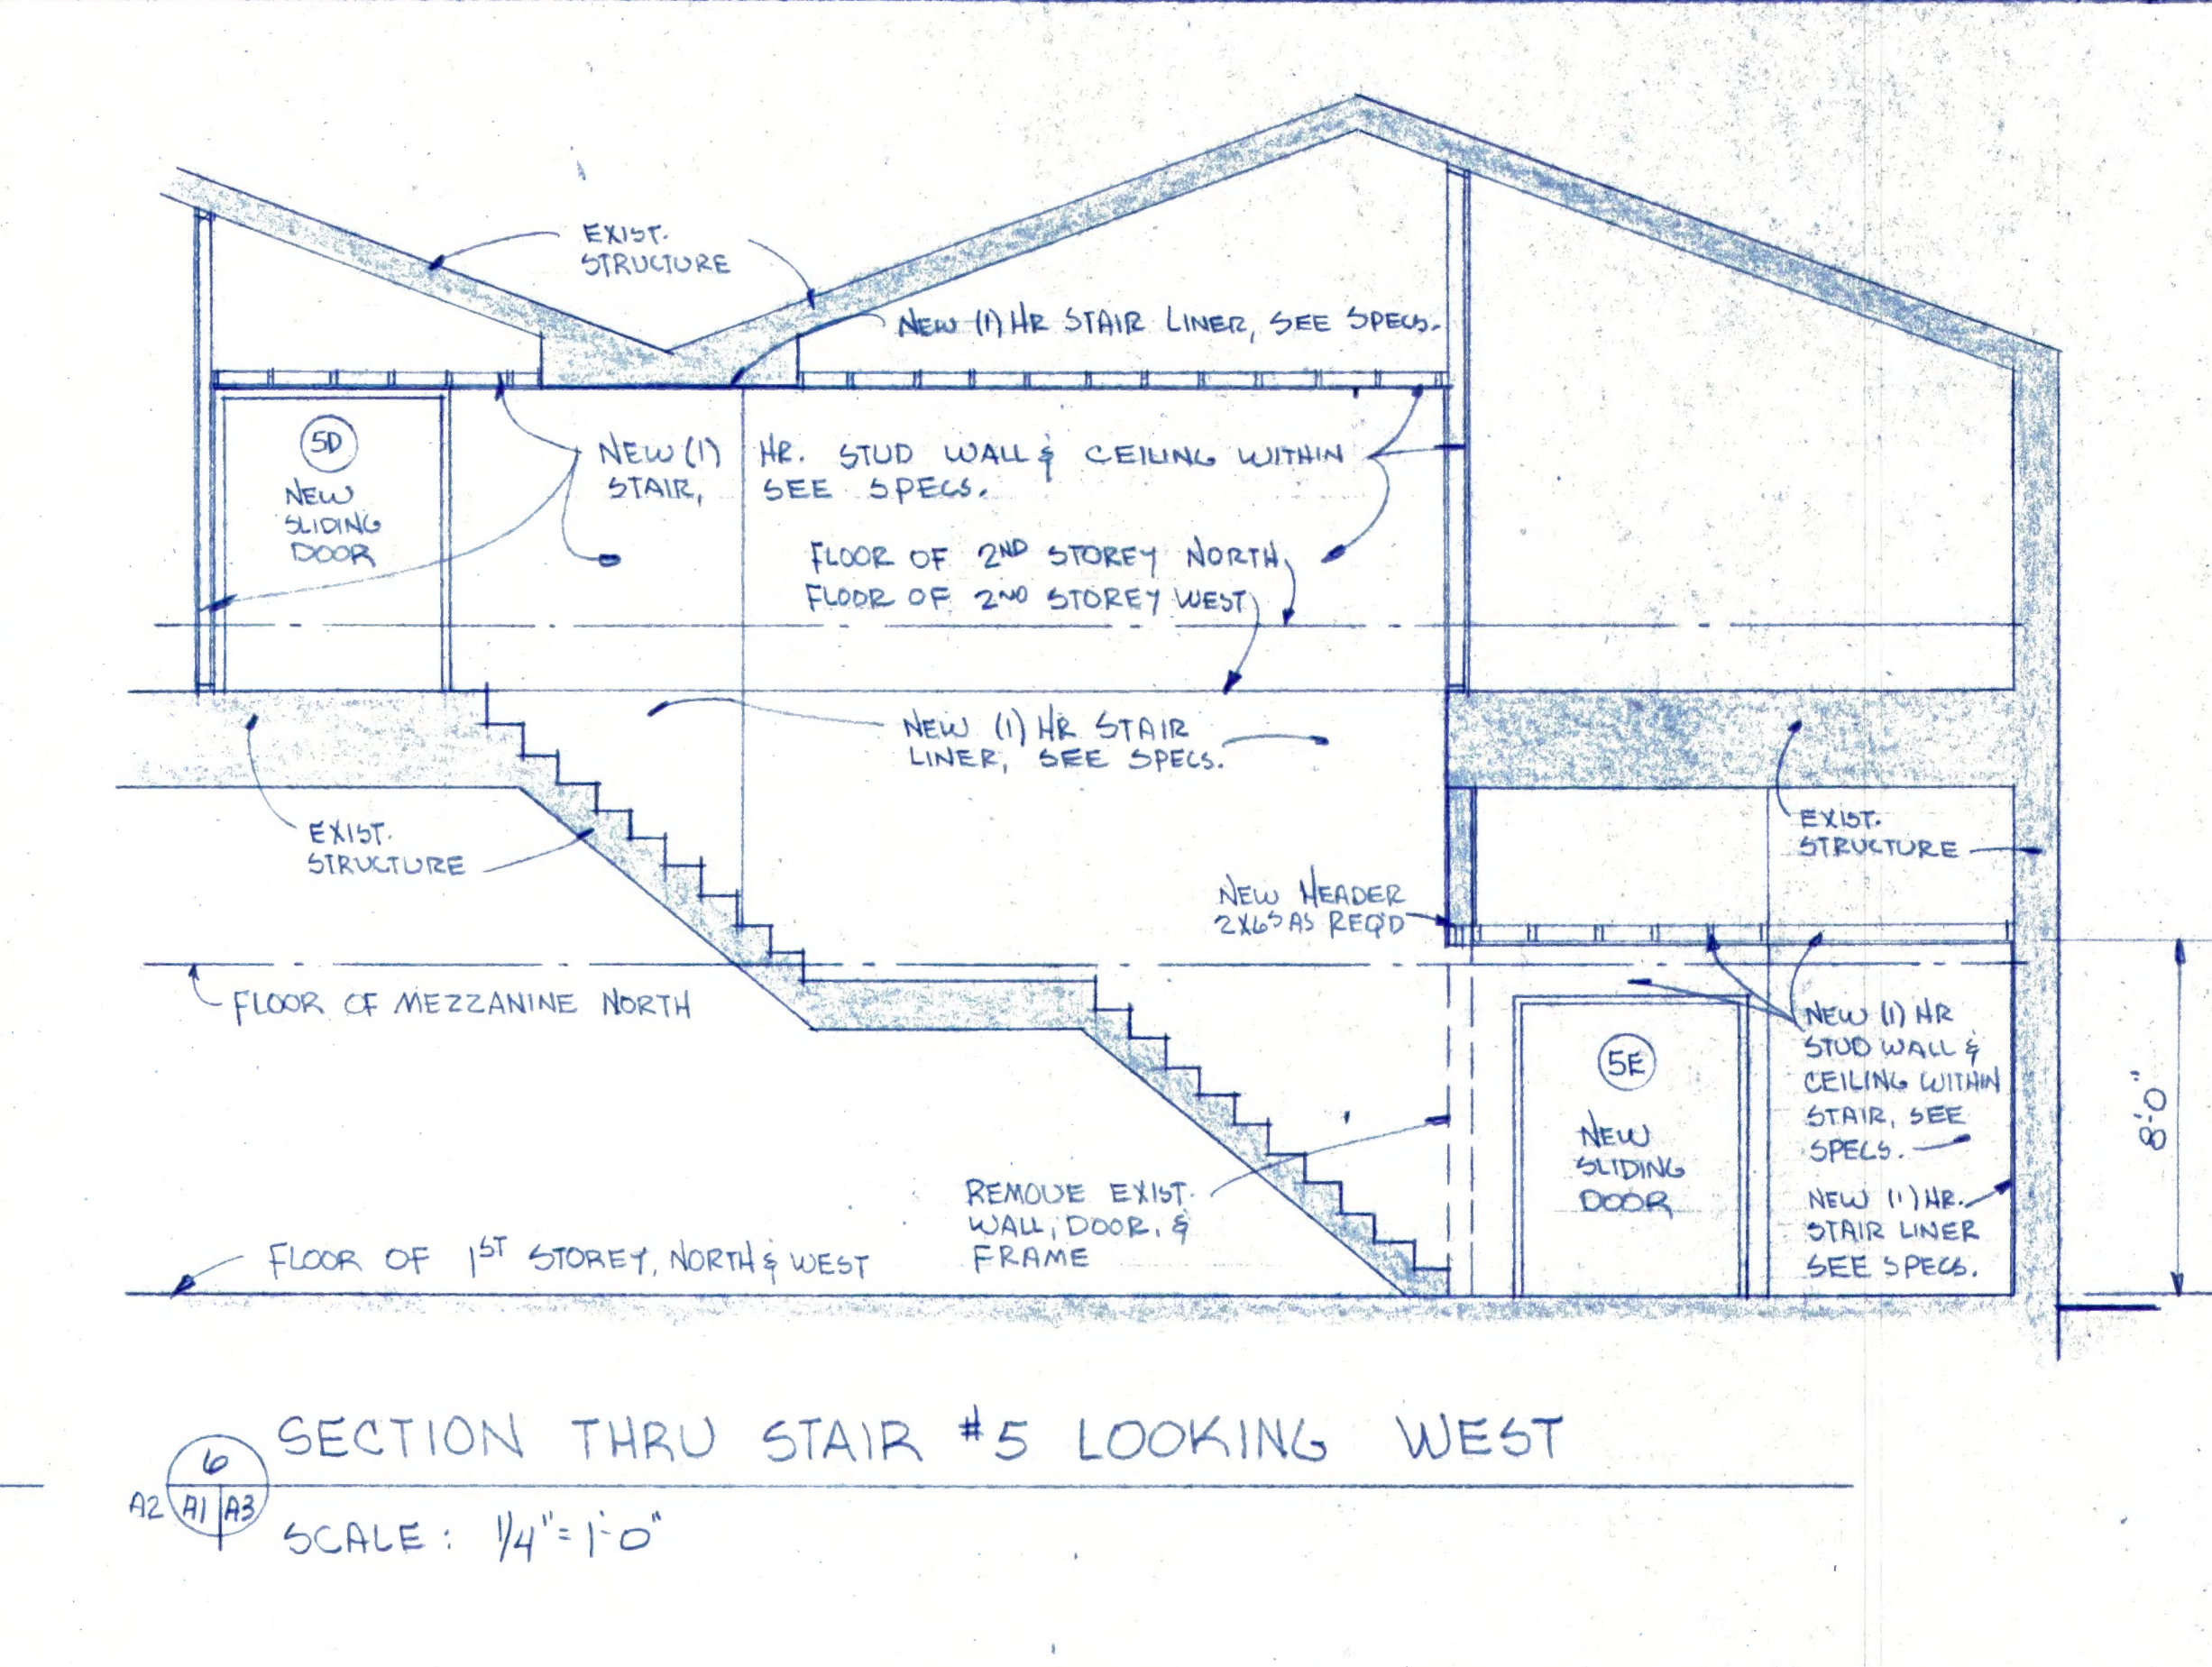 EXIST.
STRUCTURE
NEW (1) HR STAIR LINER, SEE SPECS.
5D
NEW
SLIDING
DOOR
NEW (1) HR. STUD WALL & CEILING WITHIN
STAIR, SEE SPECS.
FLOOR OF 2ND STOREY NORTH
FLOOR OF 2ND STOREY WEST
NEW (1) HR STAIR
LINER, SEE SPECS.
EXIST.
STRUCTURE
EXIST.
STRUCTURE
NEW HEADER
2X6S AS REQ'D
FLOOR OF MEZZANINE NORTH
5E
NEW
SLIDING
DOOR
NEW (1) HR
STUD WALL &
CEILING WITHIN
STAIR, SEE
SPECS.
NEW (1) HR.
STAIR LINER
SEE SPECS.
8'-0"
REMOVE EXIST.
WALL, DOOR, &
FRAME
FLOOR OF 1ST STOREY, NORTH & WEST
6
A2 A1 A3
SECTION THRU STAIR #5 LOOKING WEST
SCALE: 1/4" = 1'-0"